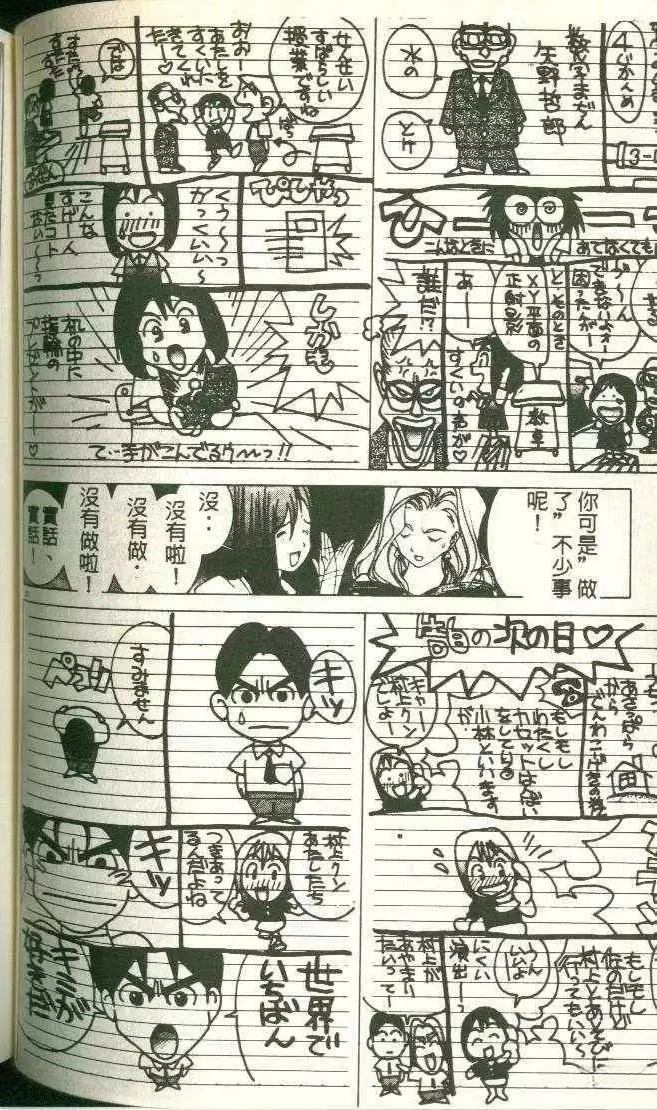 4じかんめ
数学まだん
矢野哲郎
水の
とけ
3-1
こんなときに
あてなくても
う〜ん
できないよォー
困ったがー
とゝのとき
XY平面の
正射影
教卓
あー
すくいのきみが♡
誰だ!?
せんせい
すばらしい
授業ですね
ばっ
おおー
あたしを
すくいに
きてくれ
たー♡
では
すたすた
すたすた
くぅ〜っ
かっくいい〜
こんな
すげー人
見たコト
ない〜っ
しかも
机の中に
指輪の
プレゼントがー♡
て…手がこんでるゥ〜っ!!
你可是”做
了”不少事
呢！
沒‥
沒有啦！
沒有做‧
沒有做啦！
實話、
實話！
の次の日♡
あさっぱら
から
でんわこうげきの嵐
もしもし
わたくし
カセットはんばい
をしてる
小林といいます
が‥
キャー
村上クン
でしょー
もしもし
なのだけど
村上とあそびに
行ってもいい〜
うん
いいよ
にくい
演出ーっ
村上が
あやまり
たいってー
キッ
すみません
ペコッ
村上クン
あたしたち
つきあって
るんだよね
キッ
世界で
いちばん
キミが
好きだ